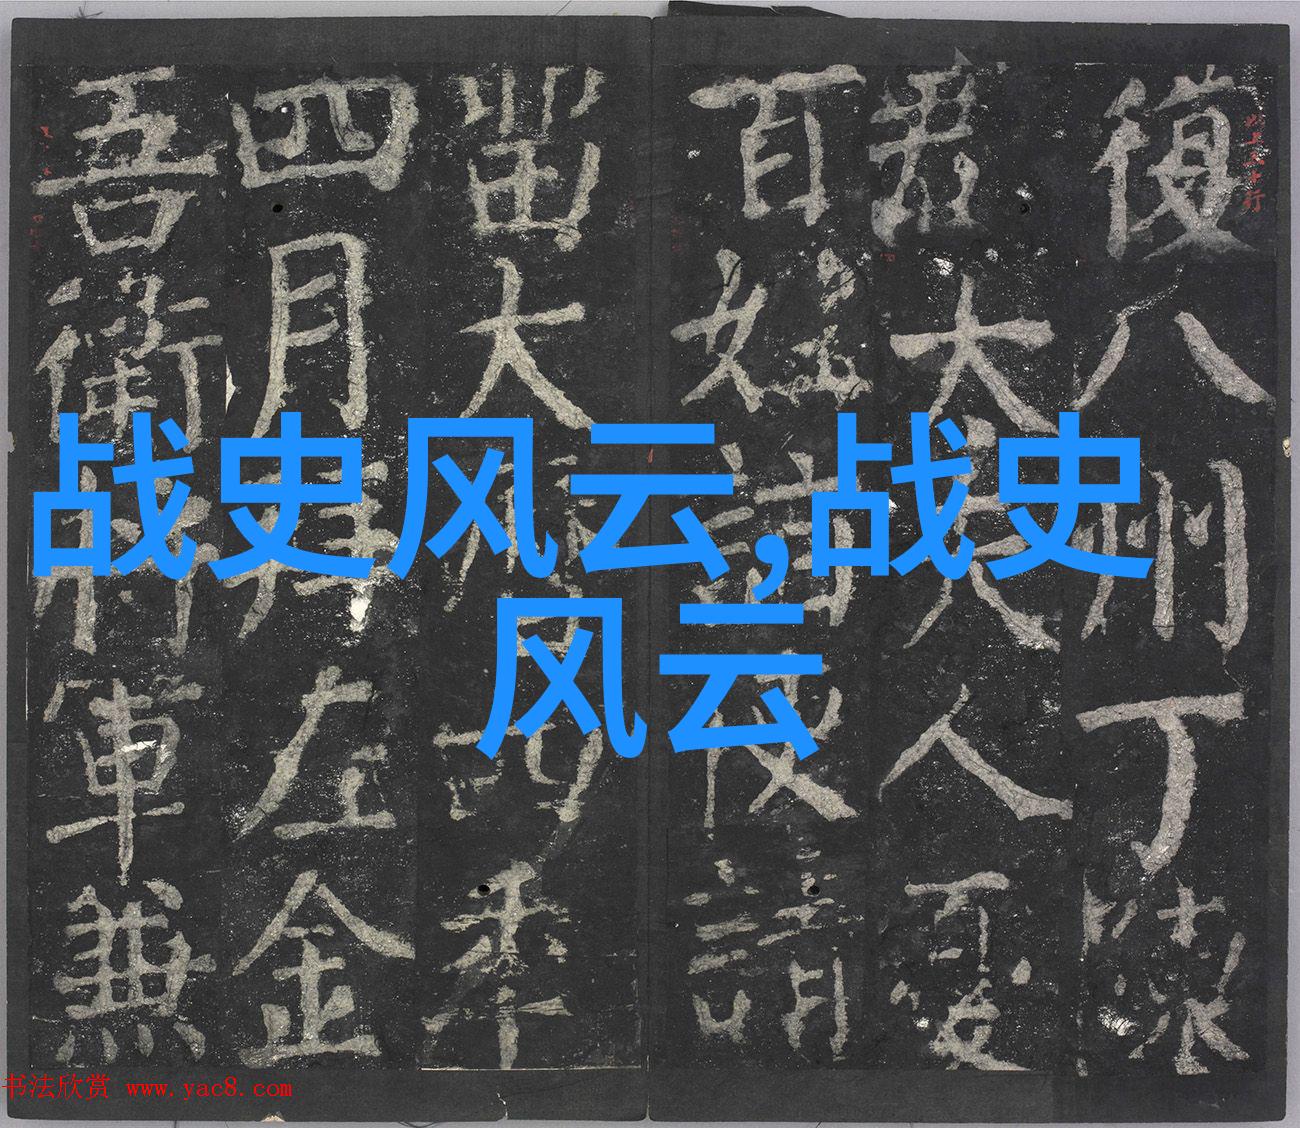 战史风云,战史
风云
復八州丁
大 人
百姓
留大 年
四月拜左金
吾衛將軍兼
书法欣赏 www.yac8.com